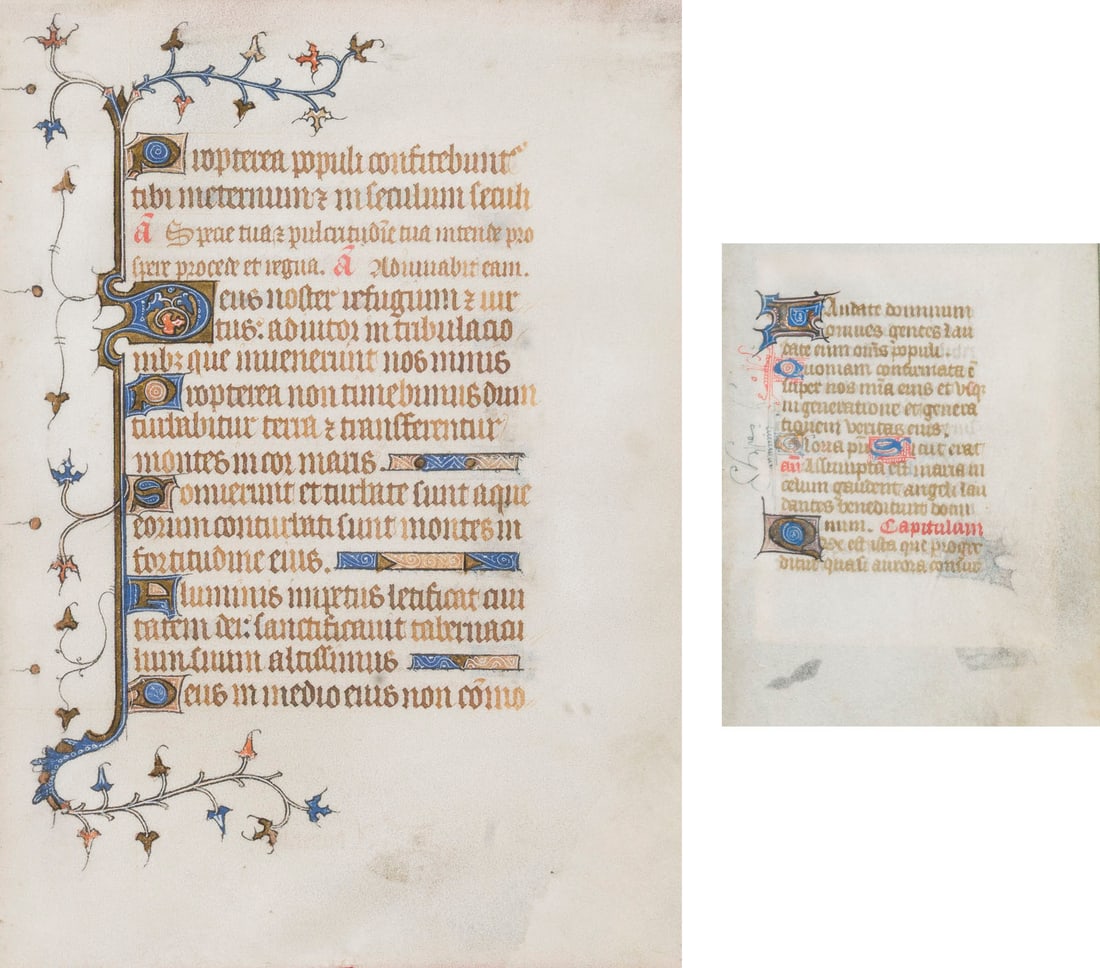 Propterea populi confitebuntᷣ
tibi ineternum ⁊ in seculum seculi
a᷃ Specie tua ⁊ pulcritudīe tua intende pro
spere procede et regna. a᷃ Adiuuabit eam.
Deus noster refugium ⁊ uir
tus: adiutor in tribulacio
nibꝫ que inuenerunt nos nimis
Propterea non timebimus dum
turbabitur terra ⁊ transferentur
montes in cor maris.
Sonuerunt et turbate sunt aque
eorum conturbati sunt montes in
fortitudine eius.
Fluminis impetus letificat ciui
tatem dei: sanctificauit tabernacu
lum suum altissimus
Deus in medio eius non cōmo
Laudate dominum
omnes gentes lau
date eum om̄s populi.
Quoniam confirmata ē
super nos mīa eius et vsqꝫ
in generatione et genera
tiouem veritas eius.
Gloria pr̄i Sicut erat
an̄ Assumpta est maria in
celum gaudent angeli lau
dantes benedicunt domi
num. Capitulum
Que est ista que progre
ditur quasi aurora consur